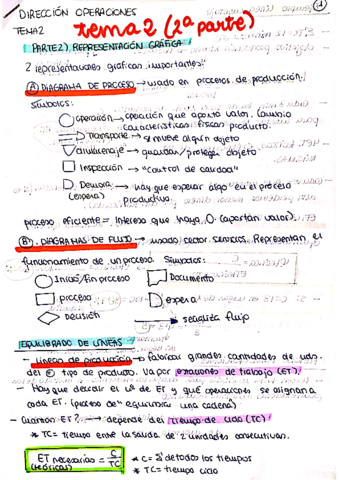 DIRECCIÓN OPERACIONES
TEMA2 tema 2 (2ª parte)
PARTE2) REPRESENTACIÓN GRÁFICA
2 representaciones gráficas importantes:
A) DIAGRAMA DE PROCESO → usado en procesos de producción.
símbolos:
operación → operación que aporta valor. Cambia
características físicas producto
Transporte → se mueve algún objeto
almacenaje → guardar/proteger objeto
Inspección → "control de calidad"
D. Demora → hay que esperar algo en el proceso
(espera) productivo
proceso eficiente = interesa que haya O. (aportan valor).
B) DIAGRAMAS DE FLUJO → usado sector servicios. Representan el
funcionamiento de un proceso. Símbolos:
Inicio/fin proceso Documento
proceso espera
decisión señaliza flujo
EQUILIBRADO DE LÍNEAS
- Líneas de producción → fabricar grandes cantidades de uds.
del = tipo de producto. Va por estaciones de trabajo (ET).
- Hay que decidir el nº de ET y qué operaciones se asignan a
cada ET. (proceso de "equilibrar una cadena")
- Cuántas ET? → depende del tiempo de ciclo (TC)
* TC = tiempo entre la salida de 2 unidades consecutivas.
ET necesarias = C/TC * C = Σ de todos los tiempos
(teóricas) * TC = tiempo ciclo